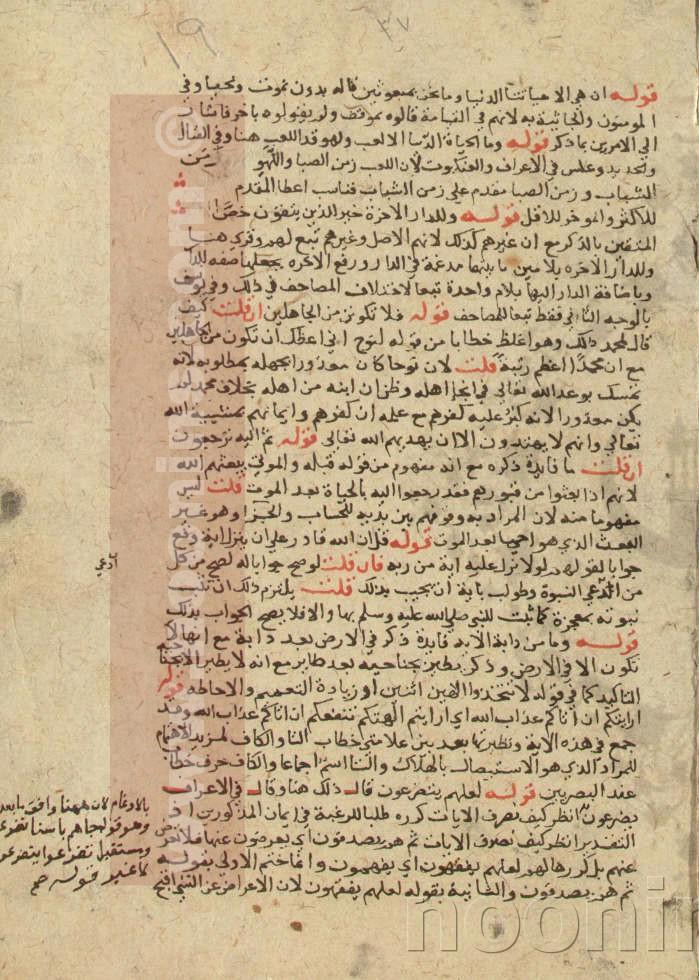 ١٩
٣٧
قوله ان هي الا حياتنا الدنيا وما نحن بمبعوثين قاله بدون نموت ونحيا وفي
المومنون والجاثية به لانهم في القيامة قالوه بموقف ولم يقولوه باخر فاشار
الي الامرين بما ذكر قوله وما الحياة الدنيا الا لعب ولهو قدم اللعب هنا وفي القتال
والحديد وعكس في الاعراف والعنكبوت لان اللعب زمن الصبا واللهو زمن
الشباب وزمن الصبا مقدم علي زمن الشباب فناسب اعطا المقدم
للاكثر والموخر للاقل قوله وللدار الاخرة خير الذين يتقون خص
المتقين بالذكر مع ان غيرهم كذلك لانهم الاصل وغيرهم تبع لهم وقري هنا
وللدار الاخره بلامين ما بينهما مدغمة في الدار ورفع الاخره بجعلها صفه للدار
وباضافة الدار اليها بلام واحدة تبعا لاختلاف المصاحف في ذلك وفي يوسف
بالوجه الثاني فقط تبعا للمصاحف قوله فلا تكونن من الجاهلين ان قلت كيف
قال لمحمد ذلك وهو اغلظ خطابا من قوله لنوح اني اعظك ان تكون من الجاهلين
مع ان محمدا اعظم رتبة قلت لان نوحا كان معذورا بجهله بمطلوبه لانه
تمسك بوعد الله تعالي في انجا اهله وظن ان ابنه من اهله بخلاف محمد لم
يكن معذورا لانه كبر عليه كفرهم مع علمه ان كفرهم وايمانهم بمشيية الله
تعالي وانهم لا يهتدون الا ان يهديهم الله تعالي قوله ثم اليه ترجعون
ان قلت ما فايدة ذكره مع انه مفهوم من قوله قبله والموتي يبعثهم الله
لانهم اذا بعثوا من قبورهم فقد رجعوا اليه بالحياة بعد الموت قلت ليس
مفهوما منه لان المراد به وقوفهم بين يديه للحساب والجزا وهو غير
البعث الذي هو احيا بعد الموت قوله قل ان الله قادر علي ان ينزل اية وقع
جوابا لقولهم لولا نزل عليه اية من ربه فان قلت لو صح جوابا له لصح من كل
من ادعي النبوة وطولب باية ان يجيب بذلك قلت يلتزم ذلك ان ثبت
نبوته بمعجزة كما ثبت للنبي صلي الله عليه وسلم بها والا فلا يصح الجواب بذلك
قوله وما من دابة الايه فايدة ذكر في الارض بعد دابة مع انها لا
تكون الا في الارض وذكر يطير بجناحيه بعد طاير مع انه لا يطير الا بجناحيه
التاكيد كما في قوله لا تتخذوا الهين اثنين او زيادة التعميم والاحاطه قوله
ارايتكم ان اتاكم عذاب الله اي ارايتم الهتكم تنفعكم ان اتاكم عذاب الله وقد
جمع في هذه الاية ونظيرتها بعد بين علامتي خطاب التا والكاف لمزيد الاهتمام
للمراد الذي هو الاستيصال بالهلاك والتا اسم اجماعا والكاف حرف خطاب
عند البصريين قوله لعلهم يتضرعون قال ذلك هنا وقال في الاعراف
يضرعون انظر كيف نصرف الايات كرره طلبا للرغبة في ايمان المذكورين اذ
التقدير انظر كيف نصرف الايات ثم هم يصدفون اي يعرضون عنها فلا تعرض
عنهم بل كررها لهم لعلهم يفقهون اي يفهمون وانما ختم الاولي بقوله
ثم هم يصدفون والثانية بقوله لعلهم يفقهون لان الاعراض عن الشي اقبح
ادعي
بالادغام لان ههنا وافق ما بعد
وهو قوله جاهم باسنا تضرعوا
ومستقبل تضرعوا يتضرعون
لا غير قوله صح
noonin